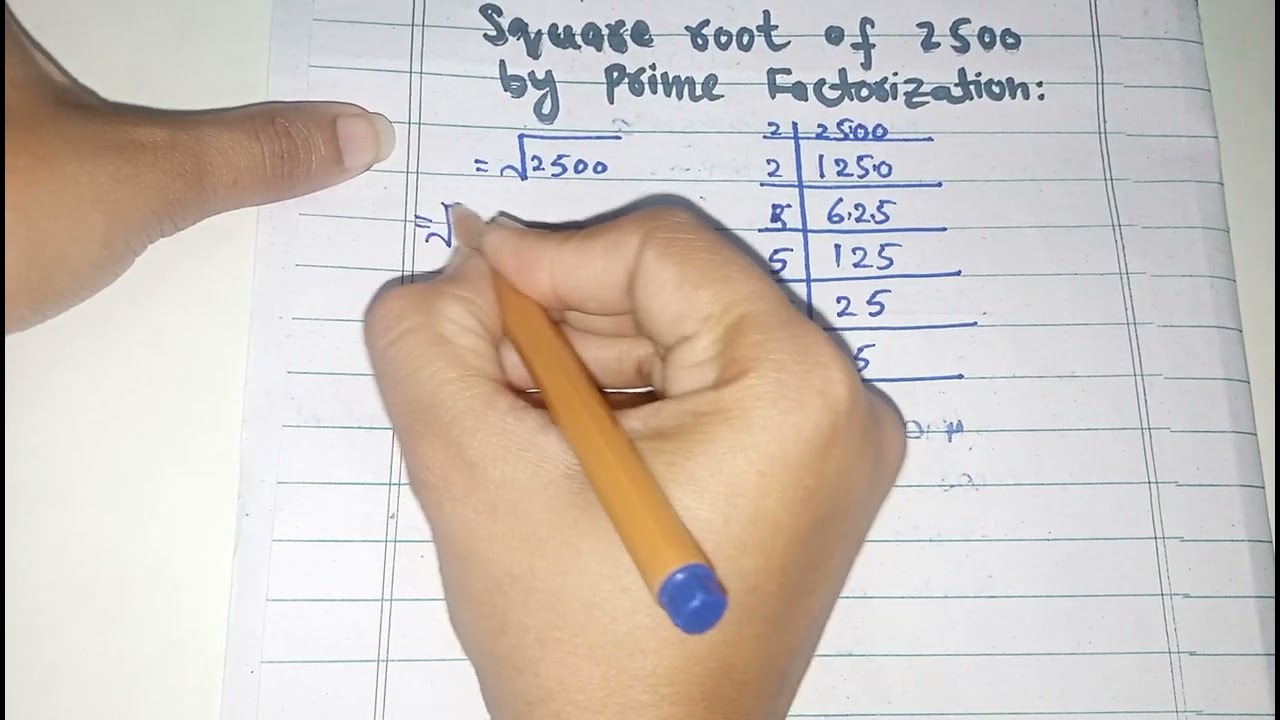 Square root of 2500
by Prime Factorization:
= √2500
= √
2 | 2500
2 | 1250
5 | 625
5 | 125
25
5